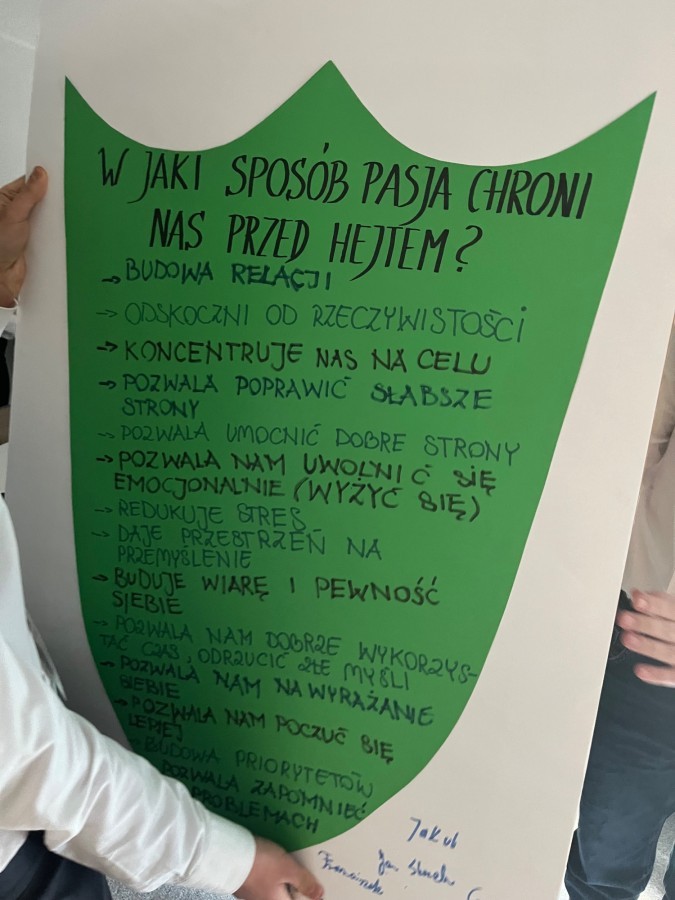 W JAKI SPOSÓB PASJA CHRONI
NAS PRZED HEJTEM?
→ BUDOWA RELACJI
→ ODSKOCZNI OD RZECZYWISTOŚCI
→ KONCENTRUJE NAS NA CELU
→ POZWALA POPRAWIĆ SŁABSZE
STRONY
→ POZWALA UMOCNIĆ DOBRE STRONY
→ POZWALA NAM UWOLNIĆ SIĘ
EMOCJONALNIE (WYŻYĆ SIĘ)
→ REDUKUJE STRES
→ DAJE PRZESTRZEŃ NA
PRZEMYŚLENIE
→ BUDUJE WIARĘ I PEWNOŚĆ
SIEBIE
→ POZWALA NAM DOBRZE WYKORZYS-
TAĆ CZAS, ODRZUCIĆ ZŁE MYŚLI
→ POZWALA NAM NA WYRAŻANIE
SIEBIE
→ POZWALA NAM POCZUĆ SIĘ
LEPIEJ
→ BUDOWA PRIORYTETÓW
POZWALA ZAPOMNIEĆ
PROBLEMACH
Jakub
Jan
Franciszek